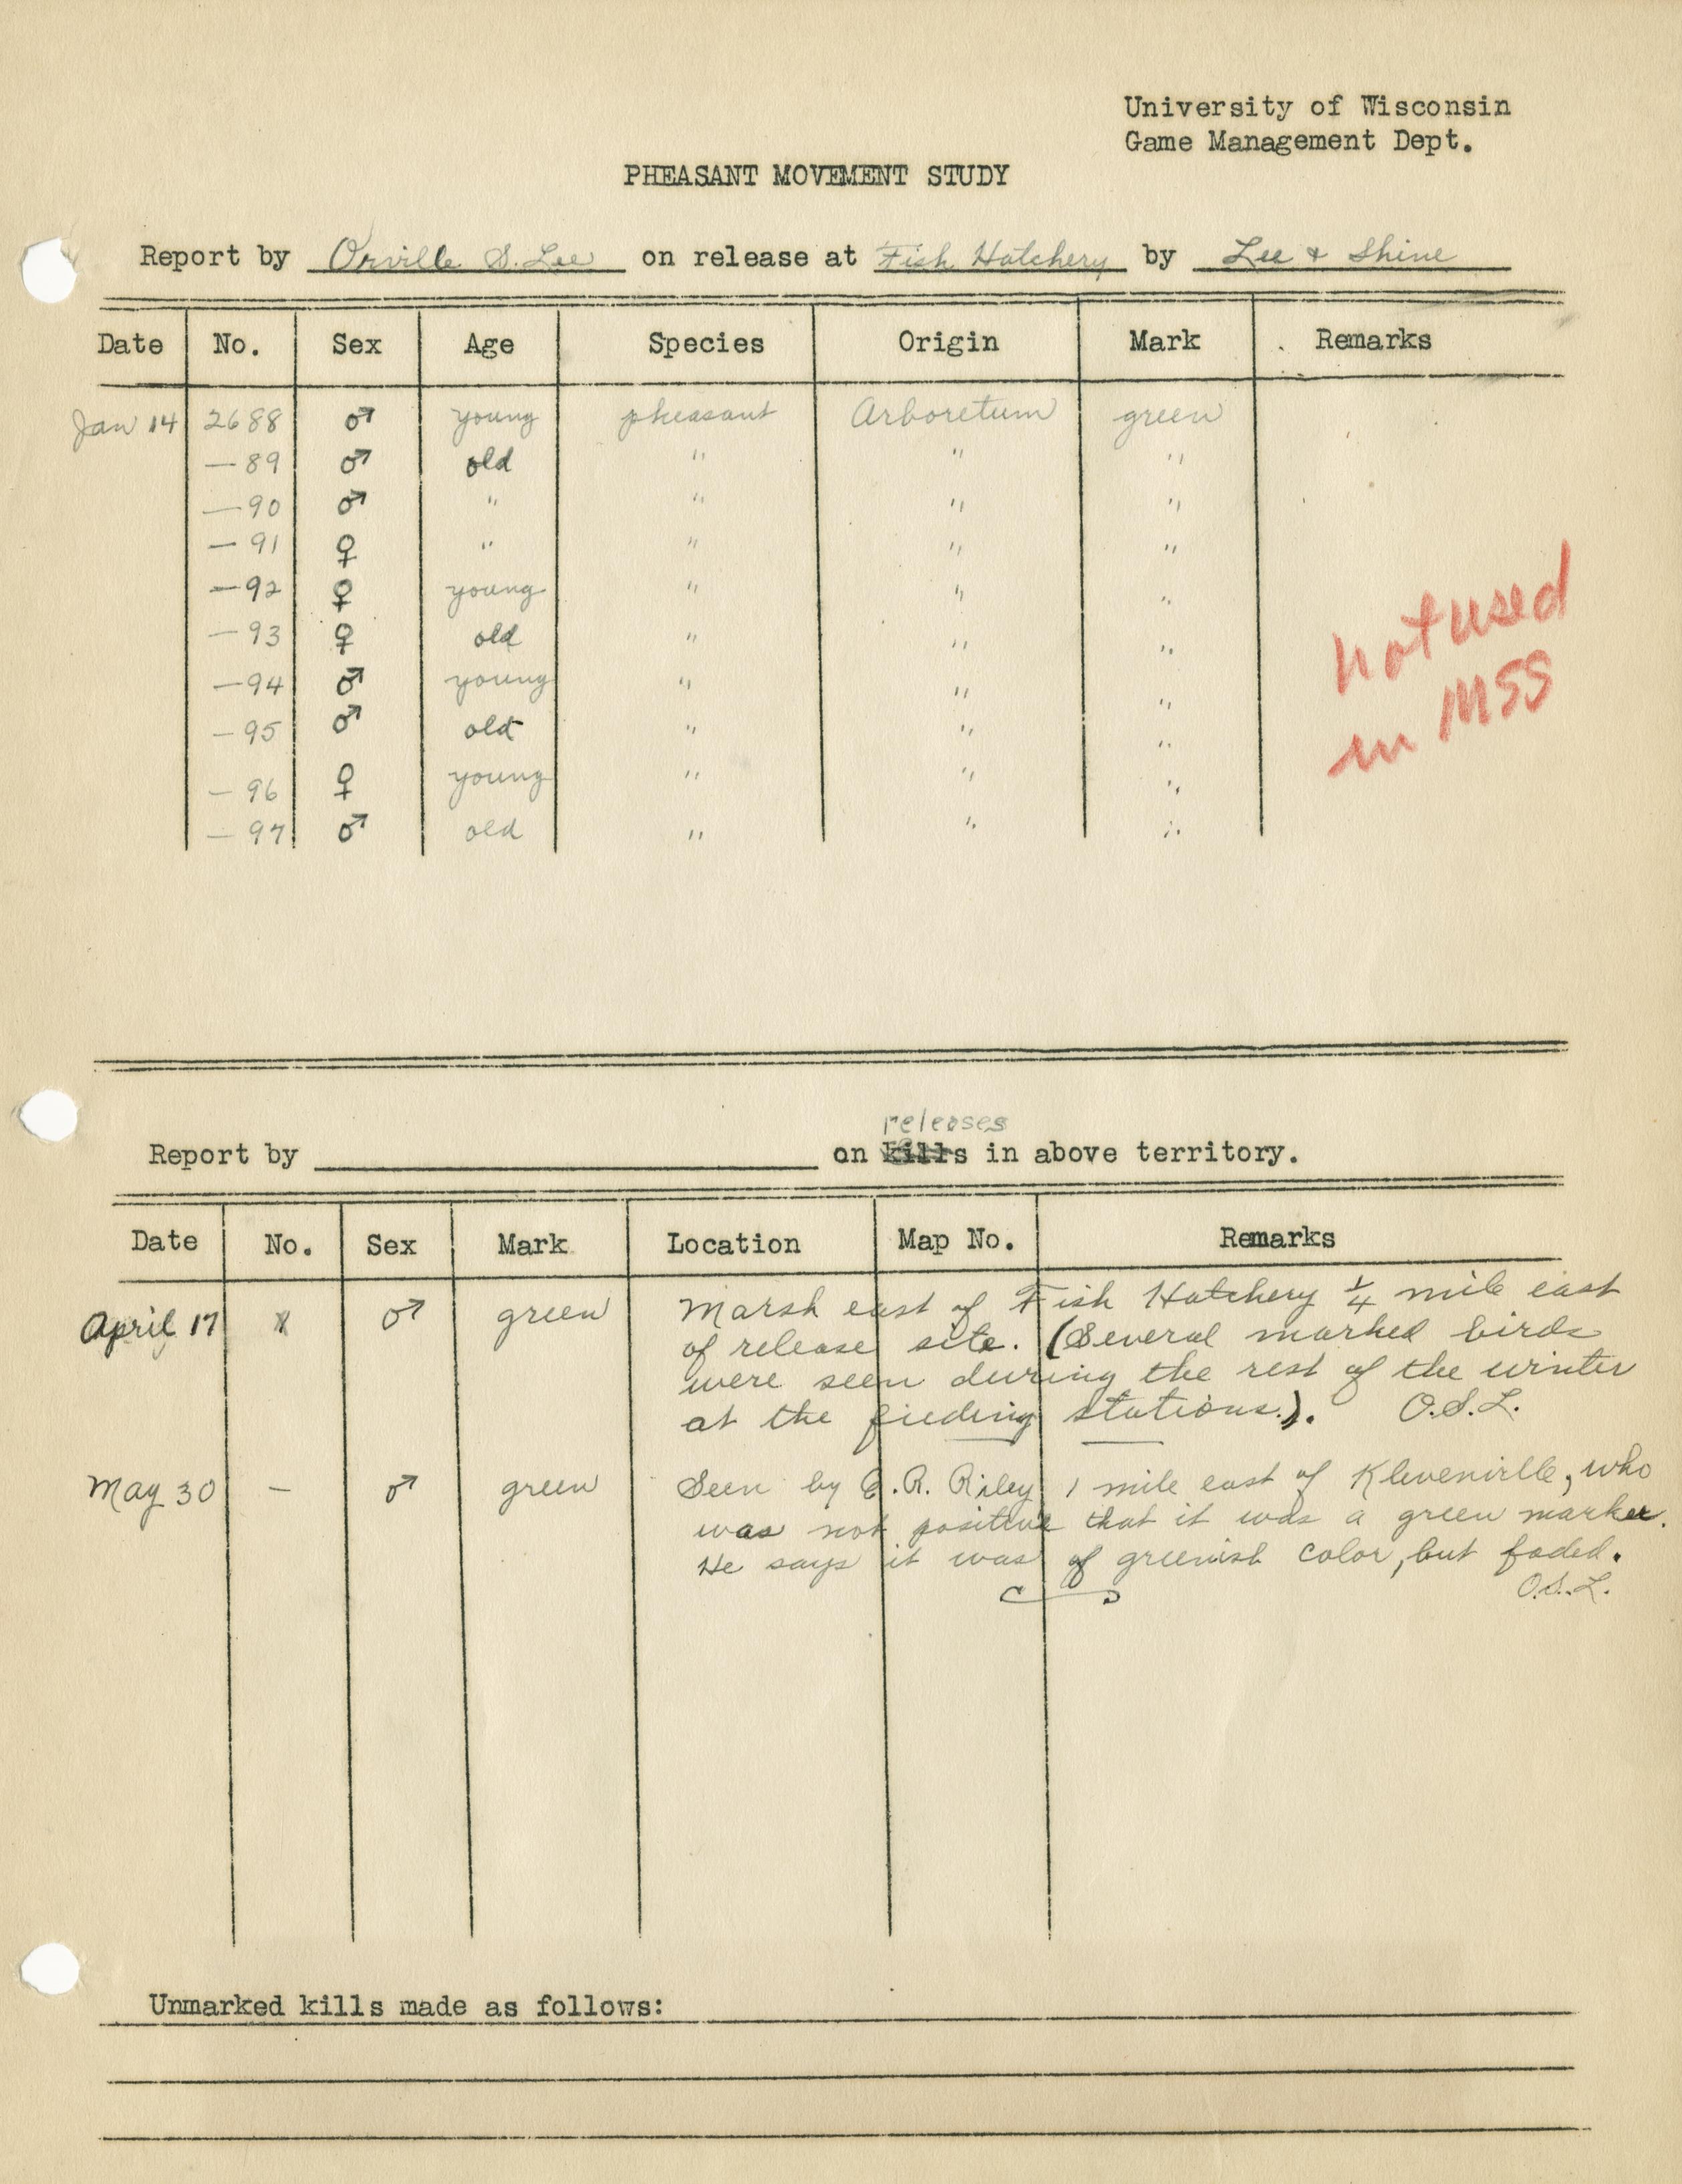 University of Wisconsin
Game Management Dept.
PHEASANT MOVEMENT STUDY
Report by Orville S. Lee on release at Fish Hatchery by Lee & Shine
Date No. Sex Age Species Origin Mark Remarks
Jan 14 2688 ♂ young pheasant Arboretum green
—89 ♂ old " " "
—90 ♂ " " " "
—91 ♀ " " " "
—92 ♀ young " " "
—93 ♀ old " " "
—94 ♂ young " " "
—95 ♂ old " " "
—96 ♀ young " " "
—97 ♂ old " " "
not used
in MSS
releases
Report by on kills in above territory.
Date No. Sex Mark Location Map No. Remarks
April 17 ♂ green Marsh east of Fish Hatchery 1/4 mile east
of release site. (Several marked birds
were seen during the rest of the winter
at the feeding stations.). O.S.L.
May 30 - ♂ green Seen by E.R. Riley 1 mile east of Klevenville, who
was not positive that it was a green marker.
He says it was of greenish color, but faded.
O.S.L.
Unmarked kills made as follows: